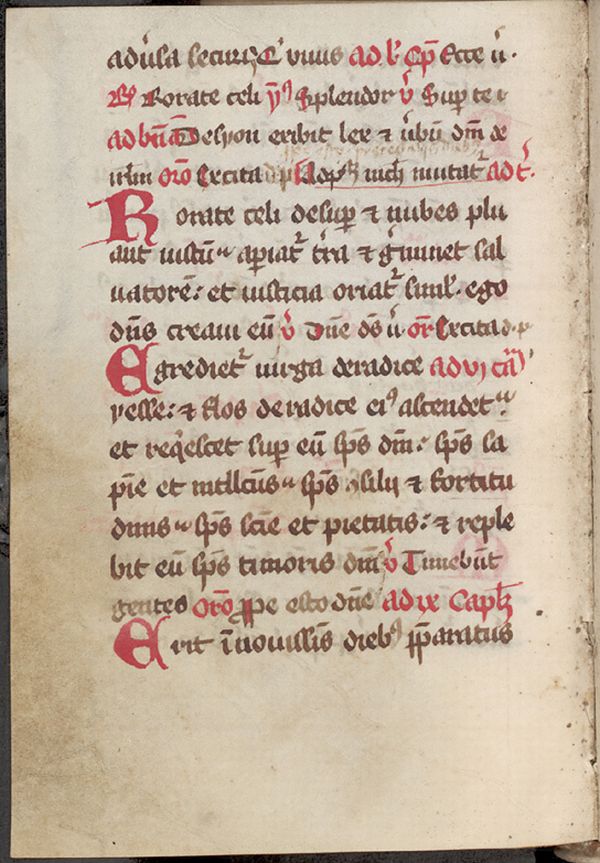 ad l̅ Cp̅ Ecce v̅.
R̸ Rorate celi Splendor v̅ Sup te
Desyon exibit lex ⁊ v̅bū dm̅ de
irlm oro̅ Excita mutat᷑ ad t̅.
Rorate celi desup ⁊ nubes plu
ant iustū apiat᷑ t̅ra ⁊ g̅minet sal
uatorē: et iusticia oriat᷑ siml̅. ego
dn̅s creaui eū v̅ Dn̅e ds̅ v̅ or̅ Excita
Egrediet᷑ uirga deradice ad vj cā
yesse: ⁊ flos deradice ei⁹ ascendet
et reqͥescet sup eū sp̅s dm̅: sp̅s sa
pīe et intllcūs sp̅s ꝯsilij ⁊ fortitu
dinis sp̅s scīe et pietatis: ⁊ reple
bit eū sp̅s timoris dm̅ v̅ Timebūt
gentes oro̅ ꝓpe esto dn̅e ad ix Capl̅
Erit ī nouissīs dieb⁹ p̅paratus